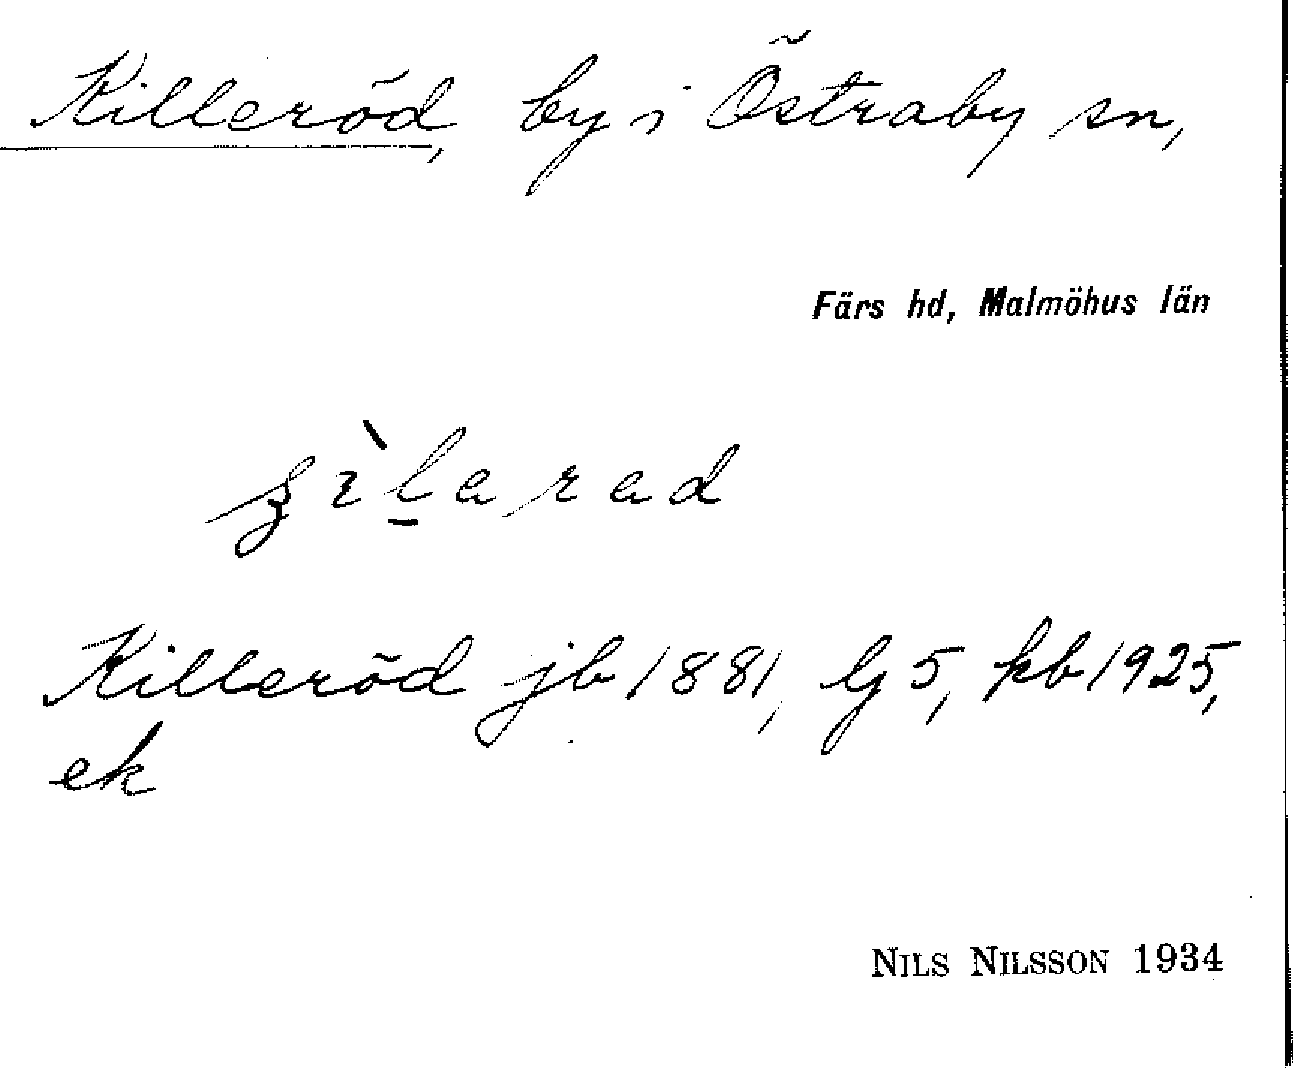 Killeröd, by i Östraby sn,
Färs hd, Malmöhus län
Killeröd jb 1881, Gg 5, kb 1925,
ek
NILS NILSSON 1934